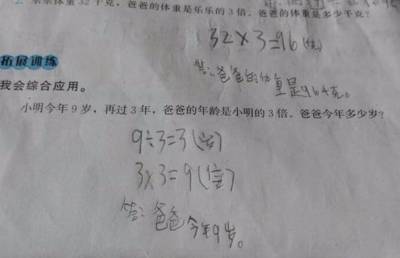 乐乐体重32千克，爸爸的体重是乐乐的3倍。爸爸的体重是多少千克？
32×3=96
答：爸爸的体重是96千克。
拓展训练
我会综合应用。
小明今年9岁，再过3年，爸爸的年龄是小明的3倍。爸爸今年多少岁？
9÷3=3
3×3=9(倍)
答：爸爸今年9岁。